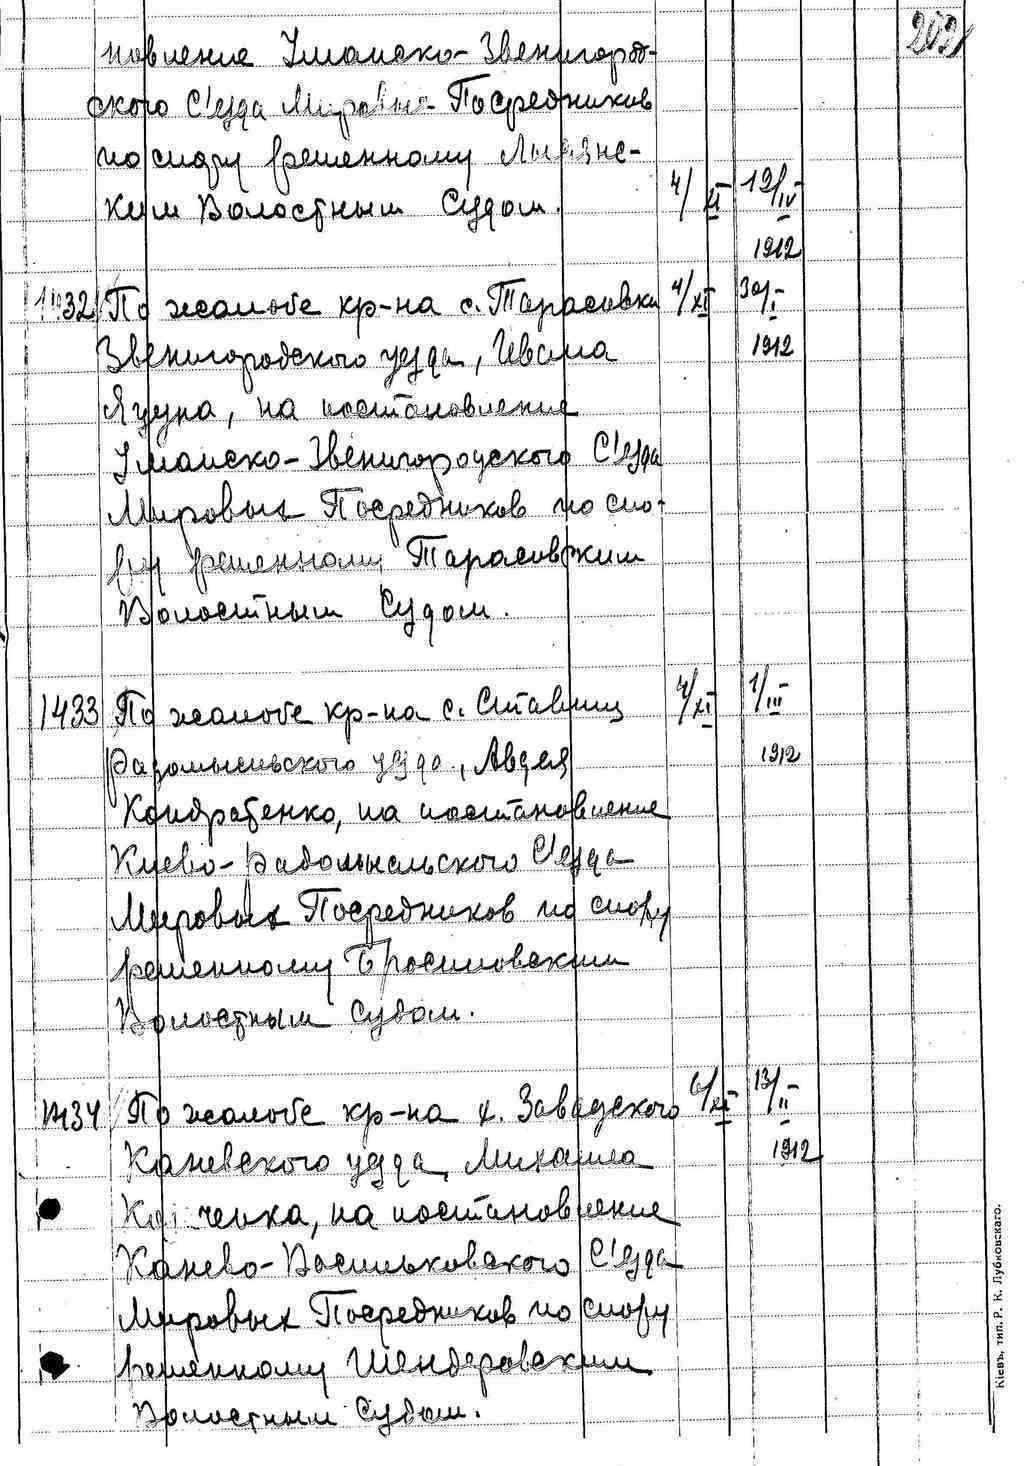 202
новление Уманско-Звенигород-
ского С'езда Мировых Посредников
по спору решенному Лысянс-
ким Волостным Судом. 4/XI 12/IV
1912
1432 По жалобе кр-на с. Тарасовки 4/XI 30/I
Звенигородского уезда, Ивана 1912
Яцуна, на постановление
Уманско-Звенигородского С'езда
Мировых Посредников по спо-
ру решенному Тарасовским
Волостным Судом.
1433 По жалобе кр-на с. Ставищ 4/XI 1/III
Радомысльского уезда, Авдея 1912
Кондратенко, на постановление
Киево-Радомысльского С'езда
Мировых Посредников по спору
решенному Брусиловским
Волостным Судом.
1434 По жалобе кр-на х. Завадского 6/XI 13/II
Каневского уезда, Михаила 1912
на постановление
Канево-Васильковского С'езда
Мировых Посредников по спору
решенному Шендеровским
Волостным Судом.
Кіевъ, тип. Р. К. Лубковскаго.